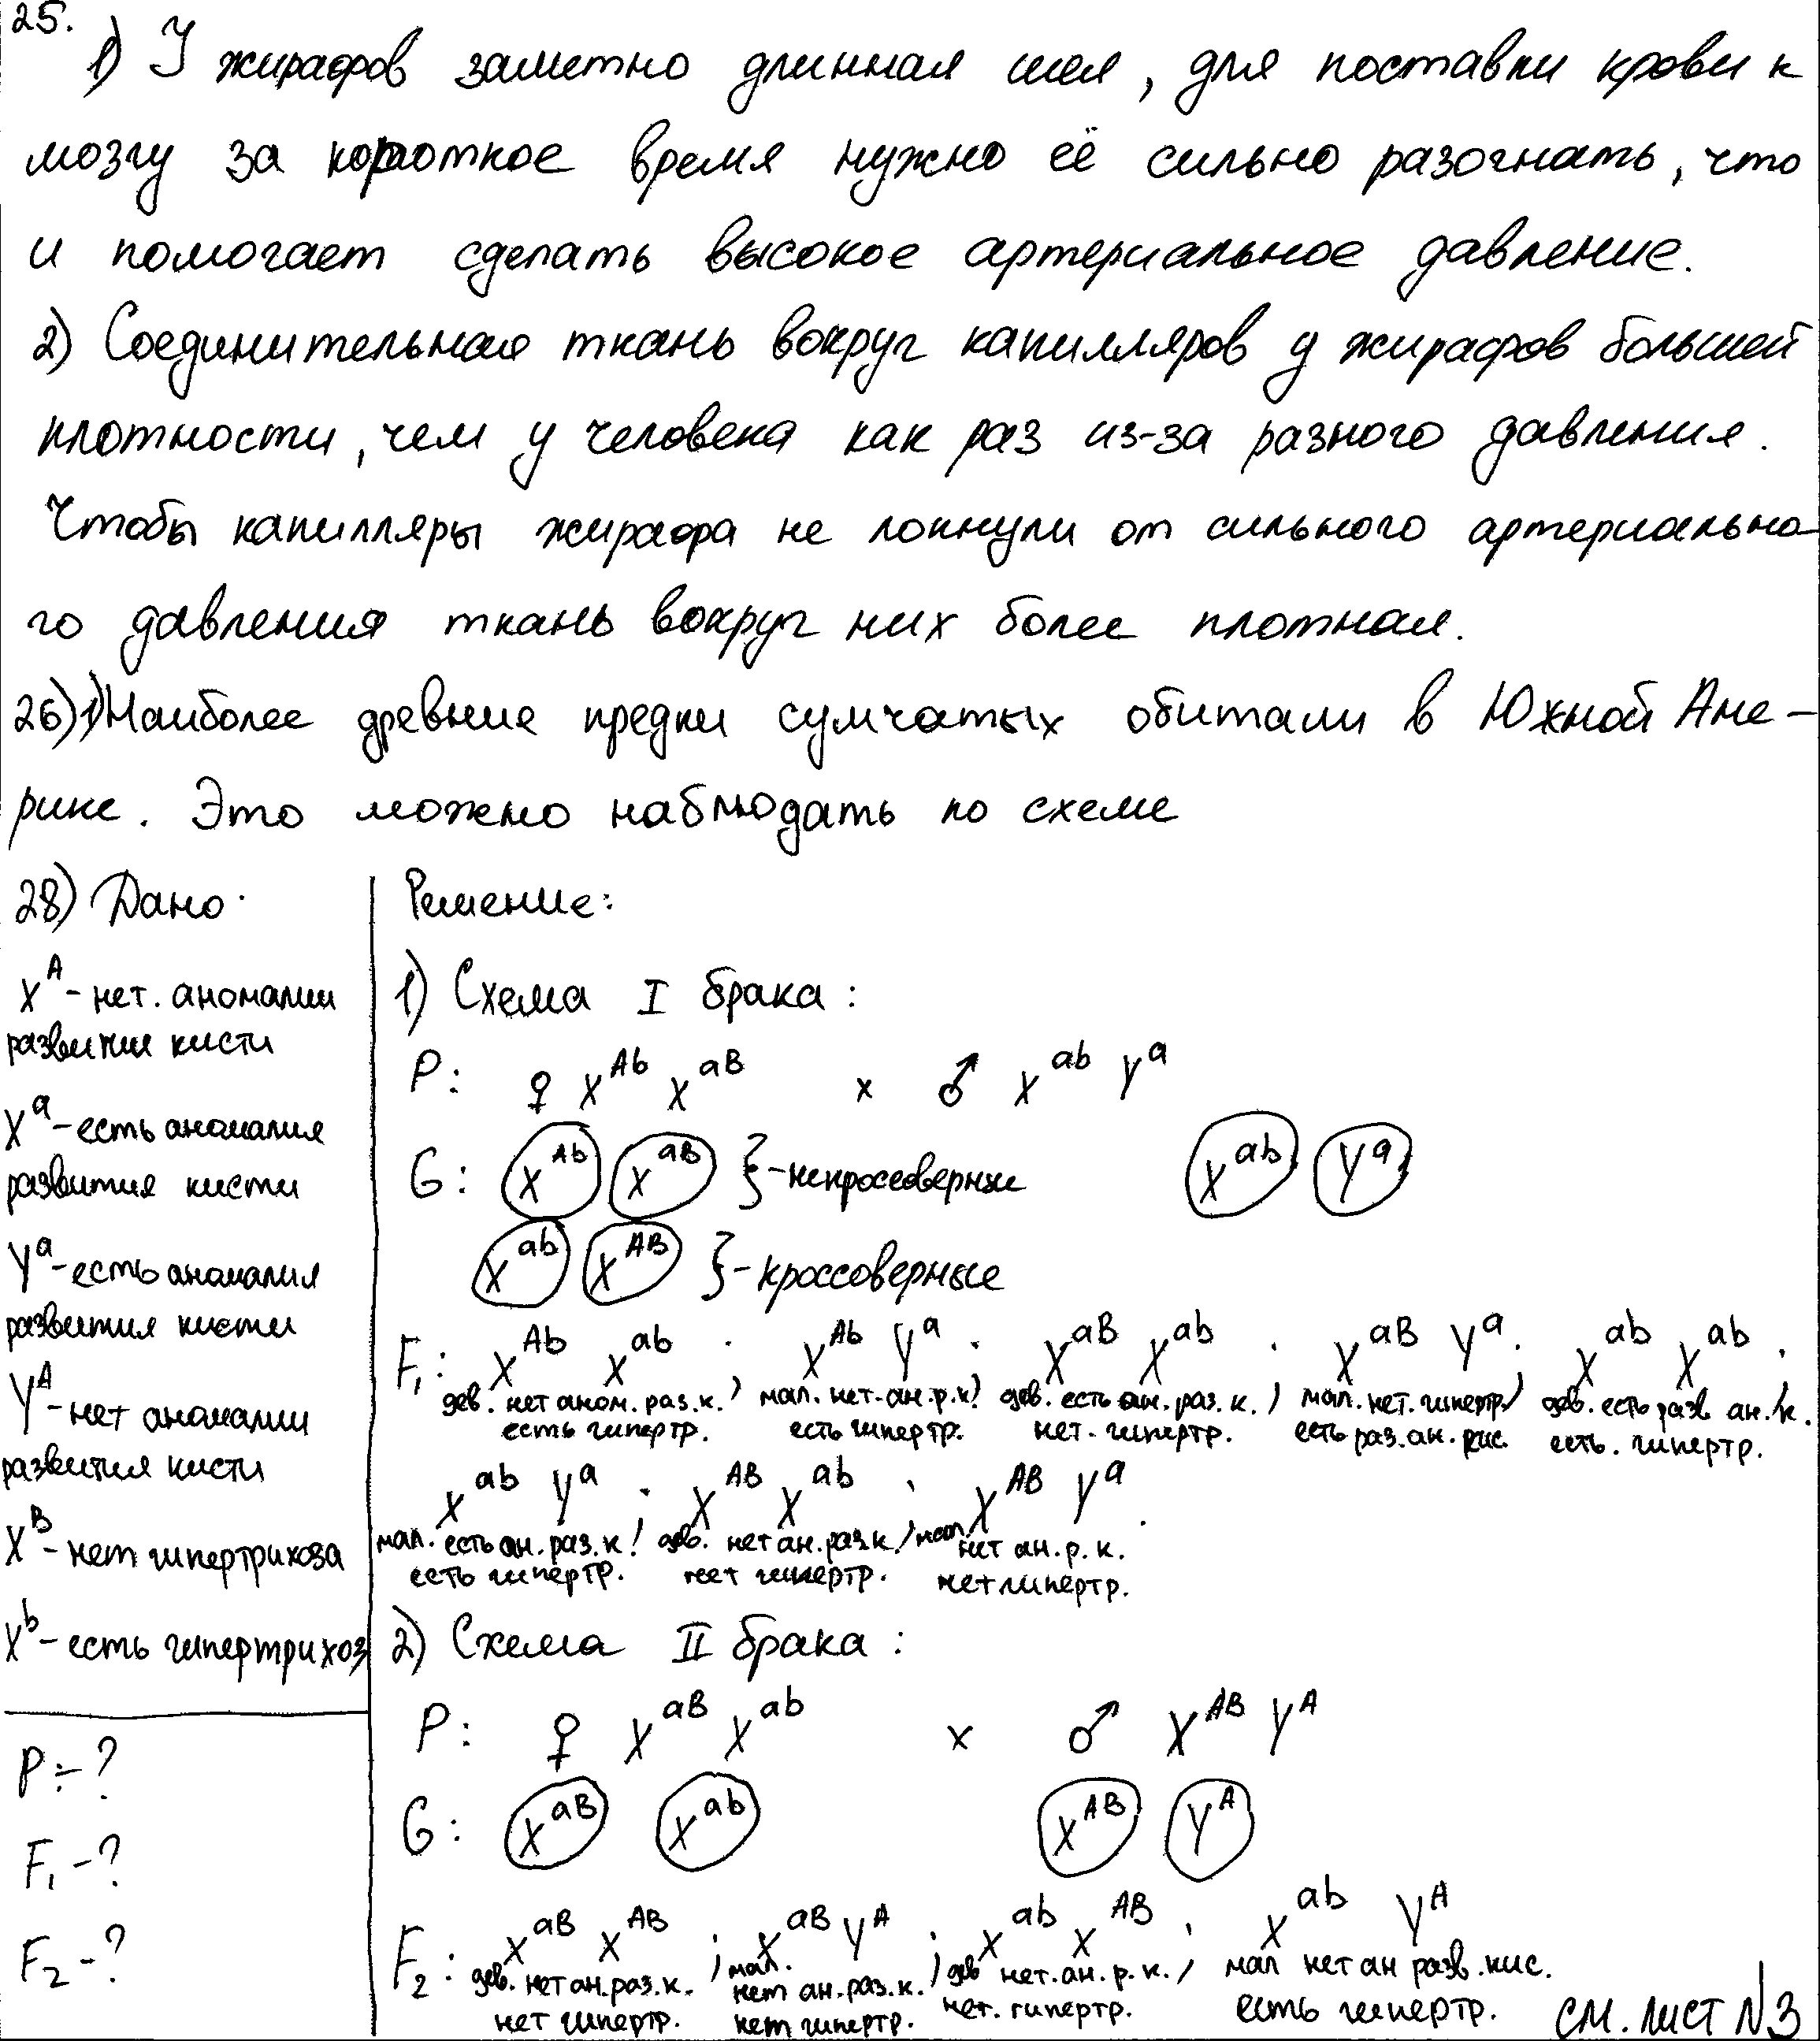 25.
1) У жирафов заметно длинная шея, для поставки крови к
мозгу за короткое время нужно её сильно разогнать, что
и помогает сделать высокое артериальное давление.
2) Соединительная ткань вокруг капилляров у жирафов большей
плотности, чем у человека как раз из-за разного давления.
Чтобы капилляры жирафа не лопнули от сильного артериально-
го давления ткань вокруг них более плотная.
26) 1) Наиболее древние предки сумчатых обитали в Южной Аме-
рике. Это можно наблюдать по схеме
28) Дано:
X^A - нет. аномалии
развития кисти
X^a - есть аномалия
развития кисти
Y^a - есть аномалия
развития кисти
Y^A - нет аномалии
развития кисти
X^B - нет гипертрихоза
X^b - есть гипертрихоз
P - ?
F₁ - ?
F₂ - ?
Решение:
1) Схема I брака:
P: ♀ X^Ab X^aB x ♂ X^ab Y^a
G: X^Ab X^aB } - некроссоверные X^ab Y^a
X^ab X^AB } - кроссоверные
F₁: X^Ab X^ab ; X^Ab Y^a ; X^aB X^ab ; X^aB Y^a ; X^ab X^ab ;
дев. нет аном. раз. к. мал. нет. ан. р. к. дев. есть ан. раз. к. мал. нет. гипертр. дев. есть разв ан. к.
есть гипертр. есть гипертр. нет. гипертр. есть раз. ан. кис. есть. гипертр.
X^ab Y^a ; X^AB X^ab ; X^AB Y^a .
мал. есть ан. раз. к. дев. нет ан. раз к. мал. нет ан. р. к.
есть гипертр. нет гипертр. нет гипертр.
2) Схема II брака:
P: ♀ X^aB X^ab x ♂ X^AB Y^A
G: X^aB X^ab X^AB Y^A
F₂: X^aB X^AB ; X^aB Y^A ; X^ab X^AB ; X^ab Y^A
дев. нет ан. раз. к. мал. нет ан. раз. к. дев нет. ан. р. к. мал нет ан разв. кис.
нет гипертр. нет гипертр. нет. гипертр. есть гипертр.
см. лист №3